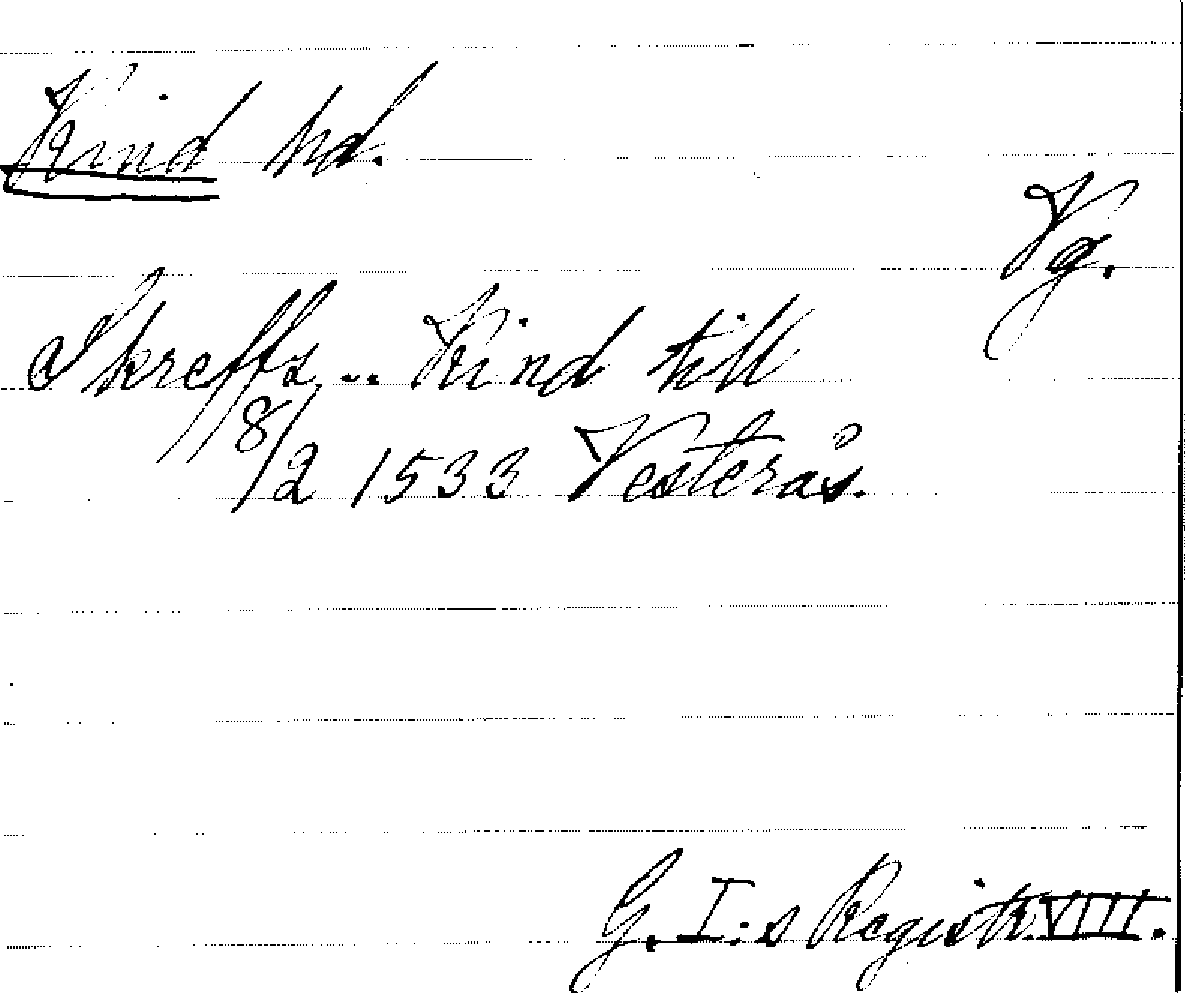 Kind hd.
Vg.
Skreffs .. Kind till
18/2 1533 Vesterås.
G. I:s Registr. VIII.